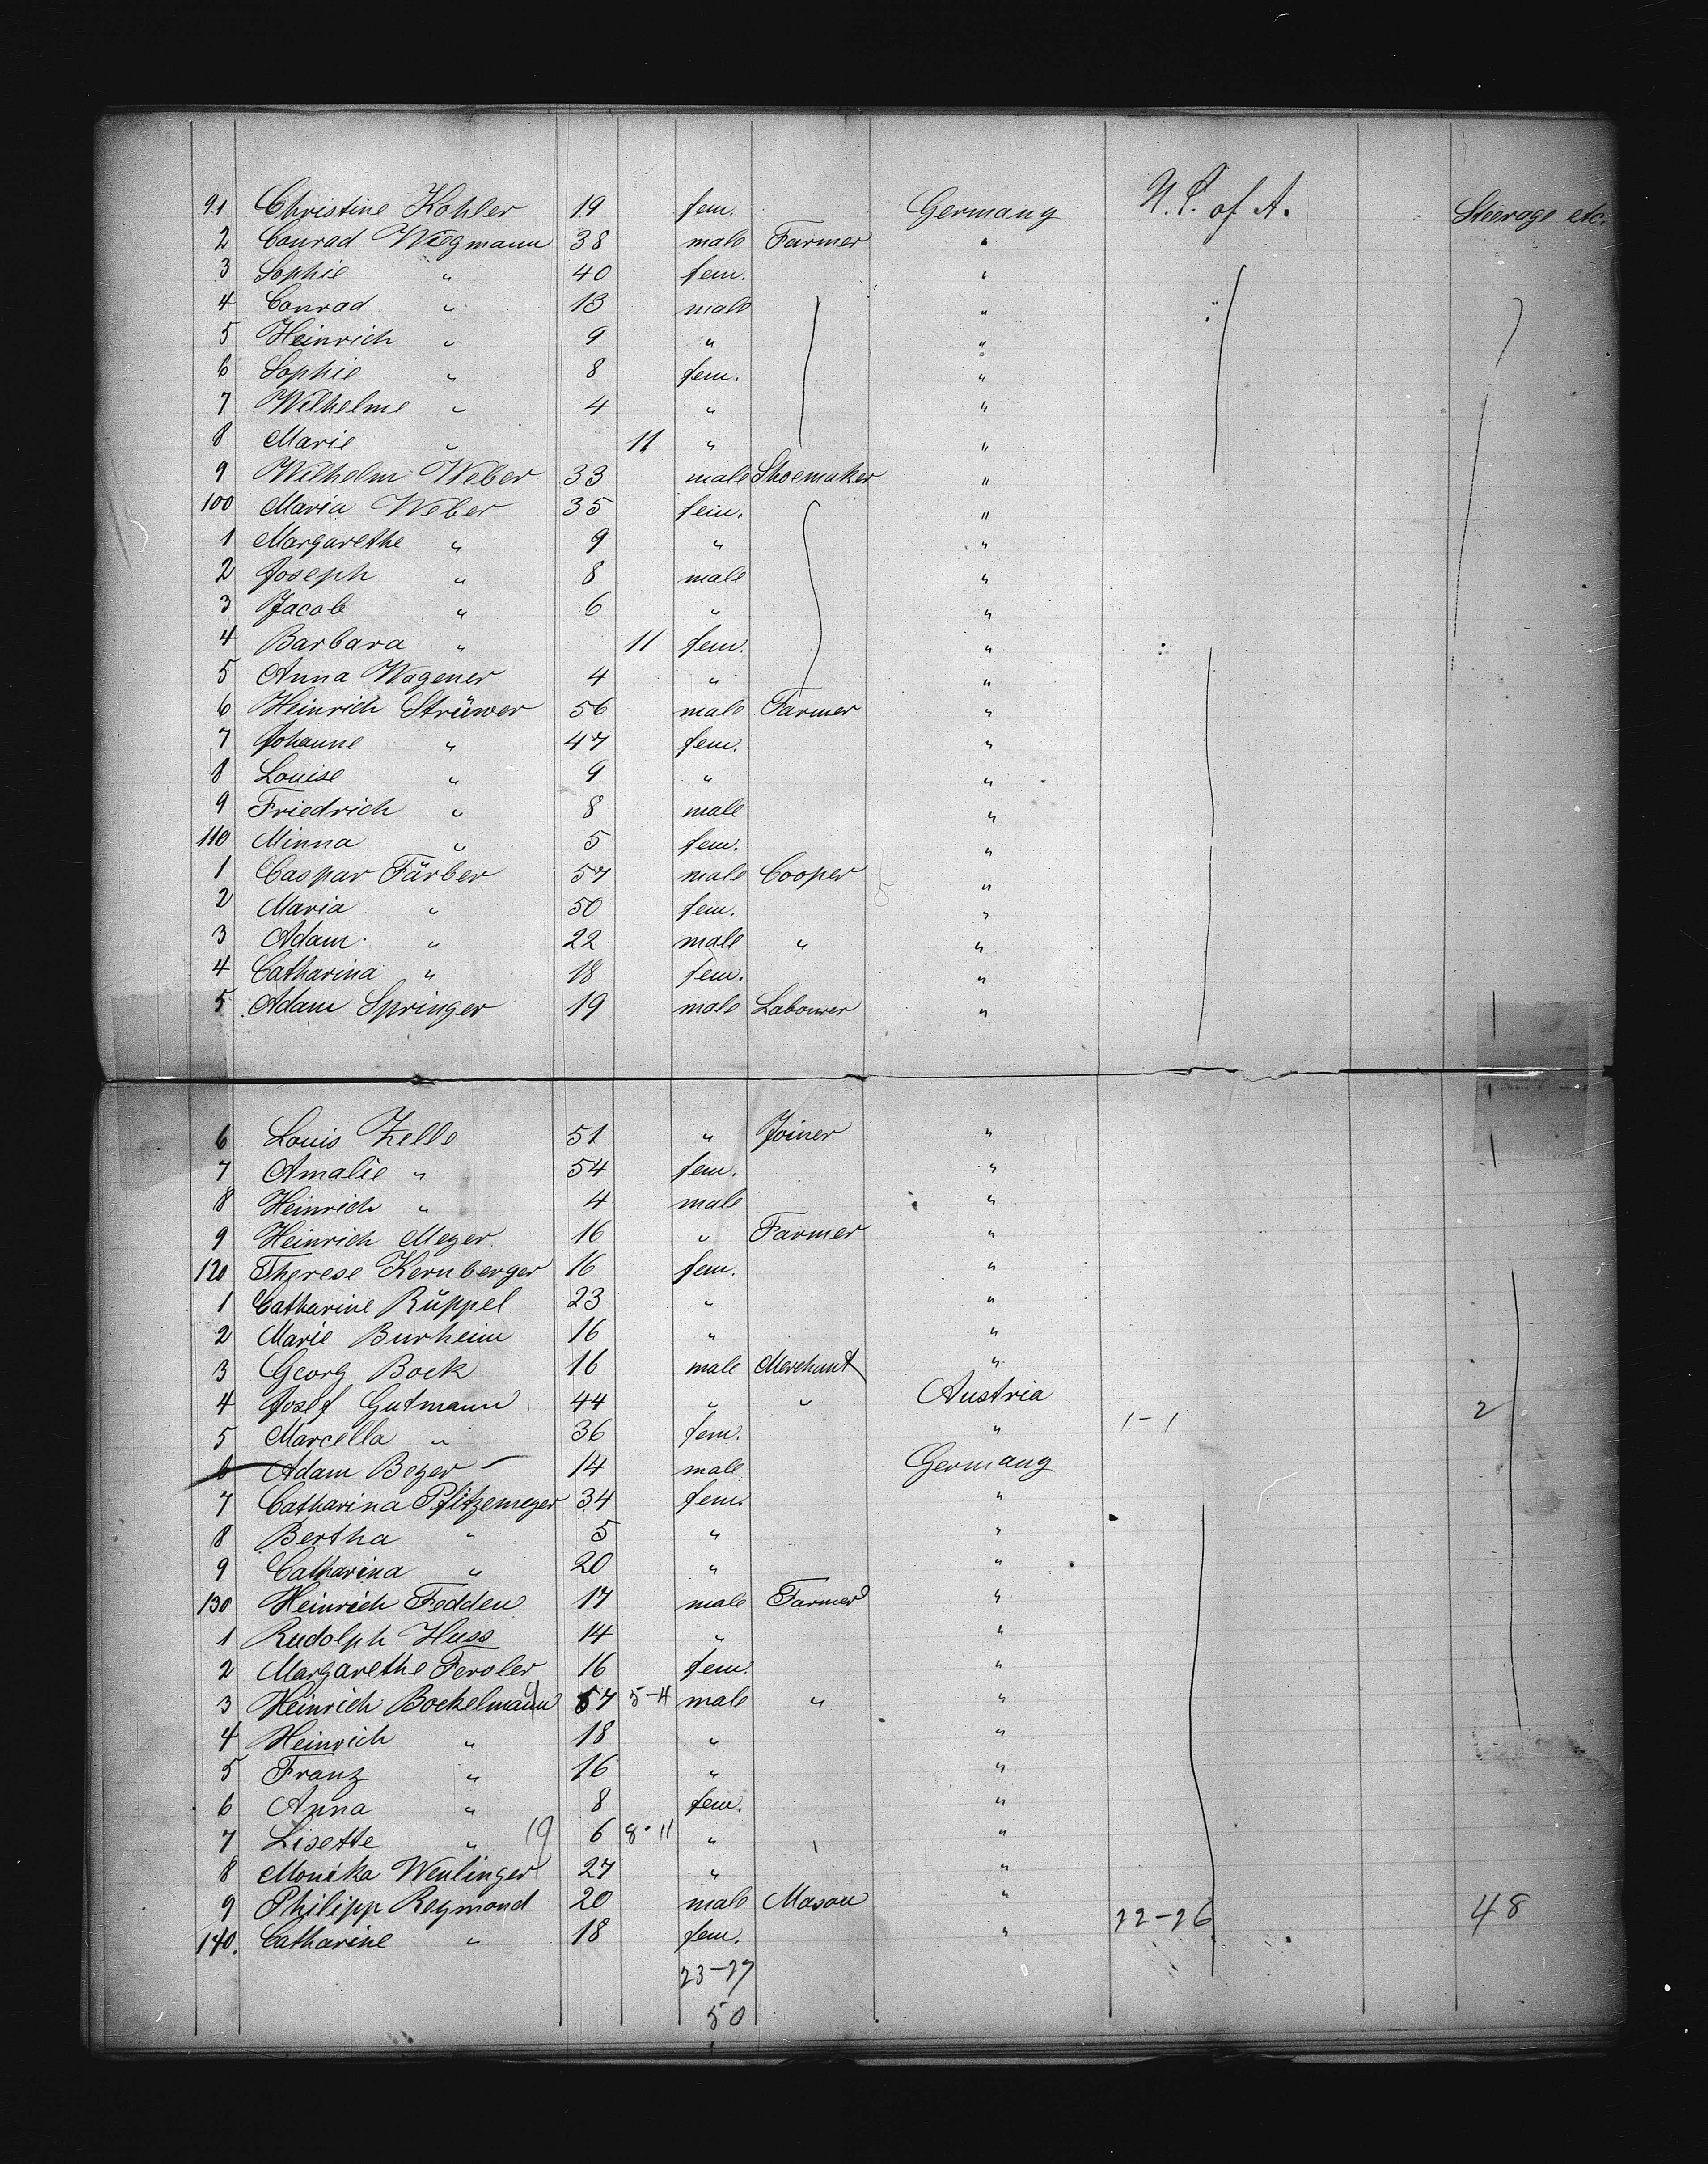 91 Christine Kohler 19 fem. Germany U.S. of A. Steerage etc.
2 Conrad Wiegmann 38 male Farmer "
3 Sophie " 40 fem. "
4 Conrad " 13 male "
5 Heinrich " 9 " "
6 Sophie " 8 fem. "
7 Wilhelme " 4 " "
8 Marie " 11 " "
9 Wilhelm Weber 33 male Shoemaker "
100 Maria Weber 35 fem. "
1 Margarethe " 9 " "
2 Joseph " 8 male "
3 Jacob " 6 " "
4 Barbara " 11 fem. "
5 Anna Wagener 4 " "
6 Heinrich Strüwer 56 male Farmer "
7 Johanne " 47 fem. "
8 Louise " 9 " "
9 Friedrich " 8 male "
110 Minna " 5 fem. "
1 Caspar Färber 57 male Cooper "
2 Maria " 50 fem. "
3 Adam " 22 male " "
4 Catharina " 18 fem. "
5 Adam Springer 19 male Labourer "
6 Louis Zelle 51 " Joiner "
7 Amalie " 54 fem. "
8 Heinrich " 4 male "
9 Heinrich Meyer 16 " Farmer "
120 Therese Kernberger 16 fem. "
1 Catharine Rüppel 23 " "
2 Marie Burheim 16 " "
3 Georg Bock 16 male Merchant "
4 Josef Gutmann 44 " " Austria 2
5 Marcella " 36 fem. " 1-1
6 Adam Beyer 14 male Germany
7 Catharina Pfitzemeyer 34 fem. "
8 Bertha " 5 " "
9 Catharina " 20 " "
130 Heinrich Fedden 17 male Farmer "
1 Rudolph Huss 14 " "
2 Margarethe Feroler 16 fem. "
3 Heinrich Bockelmann 57 5-4 male " "
4 Heinrich " 18 " "
5 Franz " 16 " "
6 Anna " 8 fem. "
7 Lisette " 19 6 8-11 " "
8 Monika Wenlinger 27 " "
9 Philipp Reymond 20 male Mason " 22-26 48
140. Catharine " 18 fem. "
23-27
50